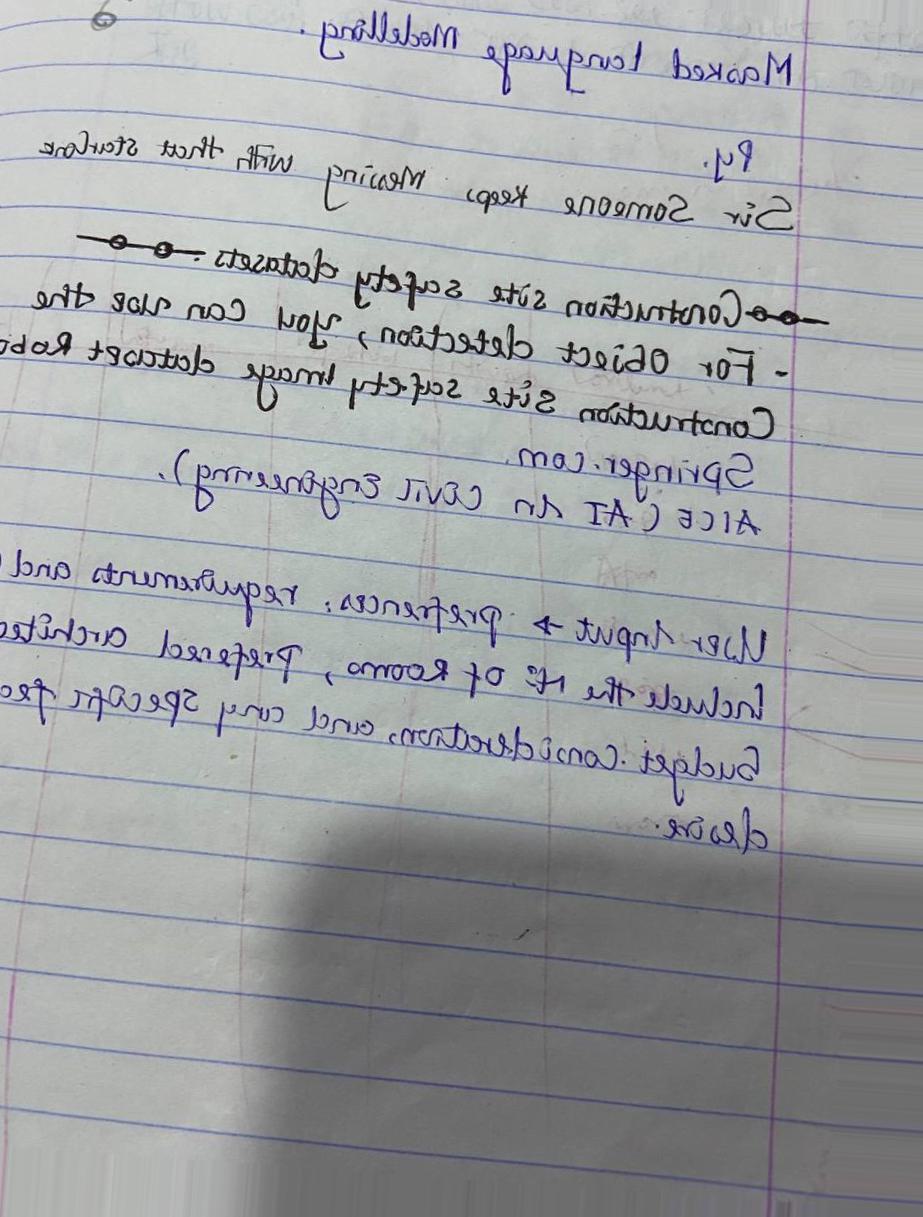 Masked Language Modelling.
By.
Sir Someone keeps Messing with that
Construction Site Safety datasets:
- For Object detection, you can use the
Construction Site Safety Image dataset
Springer.com
AICE (AI in Civil Engineering).
User Input & prefrences: requirements and
Include the of Rooms, prefered
Budget Considerations, and any Specific
desire.